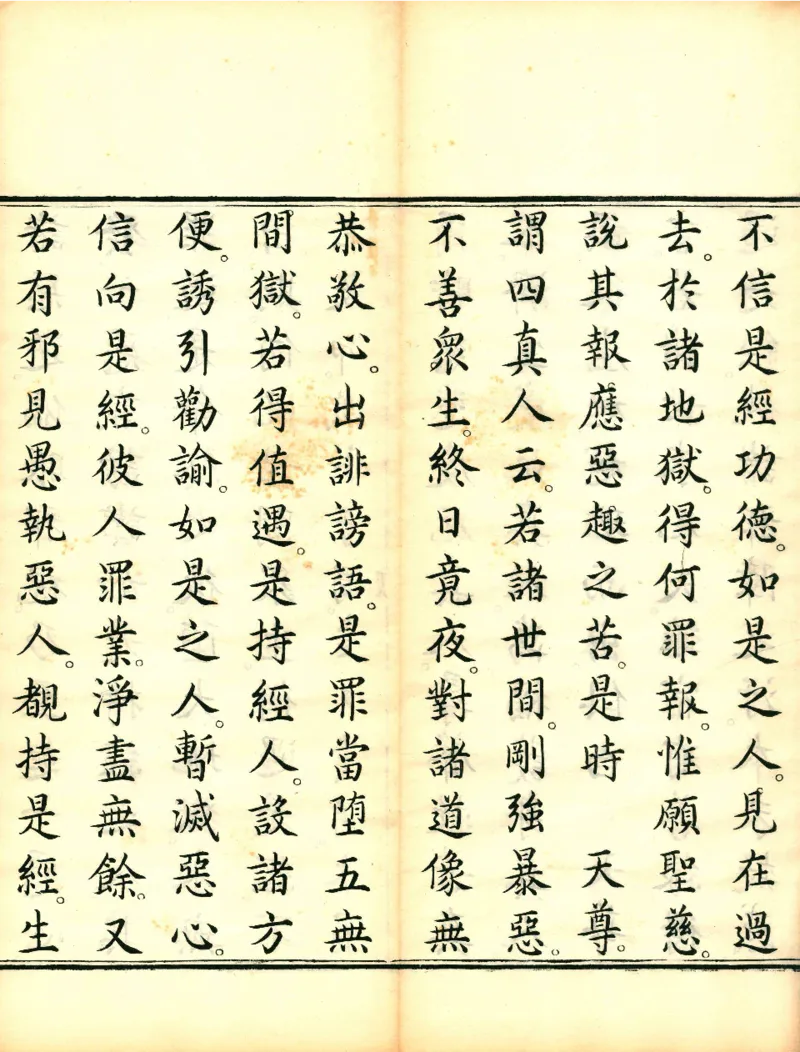 不信是經功德。如是之人。見在過
去。於諸地獄。得何罪報。惟願聖慈。
說其報應惡趣之苦。是時　天尊。
謂四真人云。若諸世間。剛強暴惡。
不善眾生。終日竟夜。對諸道像無
恭敬心。出誹謗語。是罪當墮五無
間獄。若得值遇。是持經人。設諸方
便。誘引勸諭。如是之人。暫滅惡心。
信向是經。彼人罪業。淨盡無餘。又
若有邪見愚執惡人。覩持是經。生